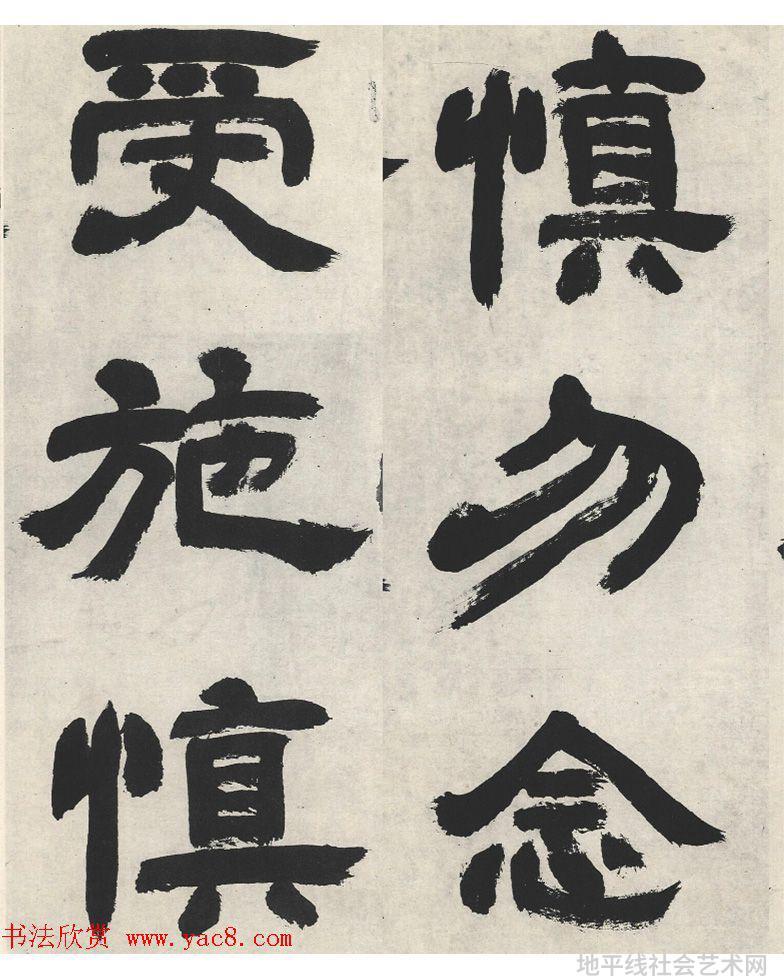 慎勿念
受施慎
书法欣赏 www.yac8.com
地平线社会艺术网